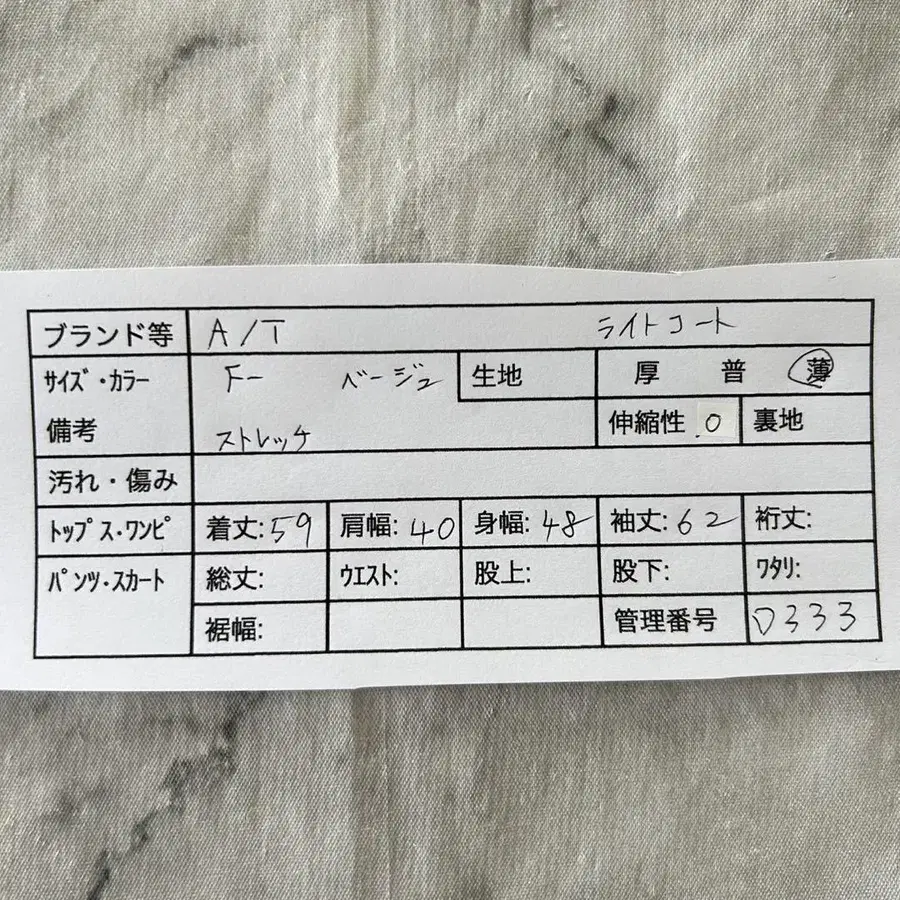 ブランド等 A/T ライトコート
サイズ・カラー F- ベージュ 生地 厚 普 薄
備考 ストレッチ 伸縮性 .0 裏地
汚れ・傷み
トップス・ワンピ 着丈:59 肩幅:40 身幅:48 袖丈:62 裄丈:
パンツ・スカート 総丈: ウエスト: 股上: 股下: ワタリ:
裾幅: 管理番号 D333